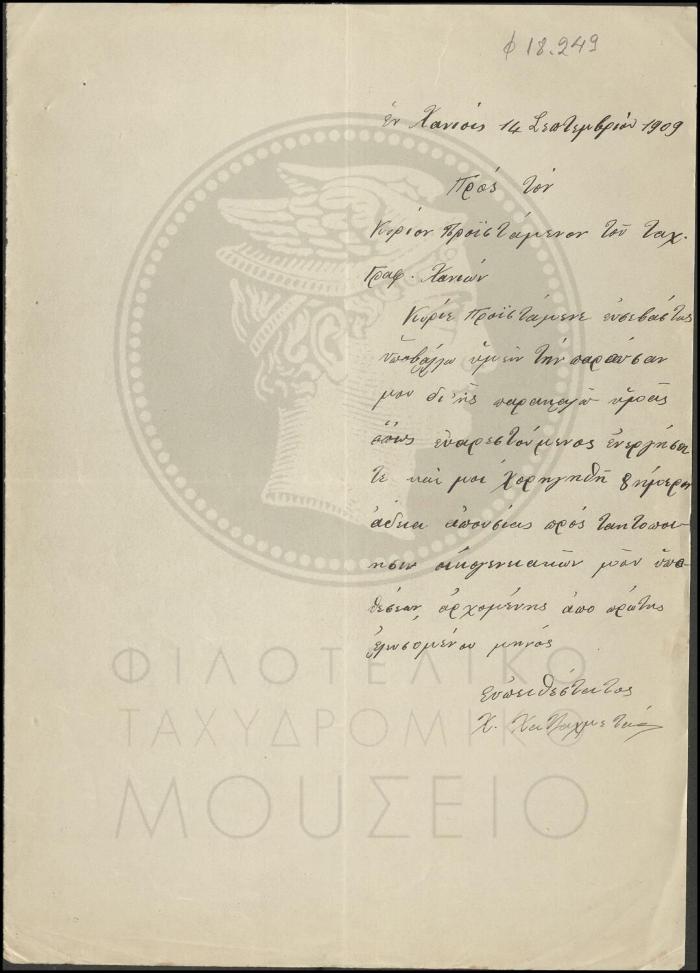 φ 18.249
ἐν Χανίοις 14 Σεπτεμβρίου 1909
Πρός τόν
Κύριον Προϊστάμενον τοῦ Ταχ.
Γραφ. Χανίων
Κύριε Προϊστάμενε εὐσεβάστως
ὑποβάλλω ὑμῖν τήν παροῦσαν
μου δι' ἧς παρακαλῶ ὑμᾶς
ὅπως εὐαρεστούμενος ἐνεργήσα
τε καί μοι χορηγηθῇ 8 ήμερος
ἀδεια ἀπουσίας πρός τακτοποι
ησιν οἰκογενειακῶν μου ὑπο
θέσεων, ἀρχομένης ἀπο πρώτης
μηνός
Εὐπειθέστατος
Χ.
ΦΙΛΟΤΕΛΙΚΟ
ΤΑΧΥΔΡΟΜΙΚΟ
ΜΟΥΣΕΙΟ